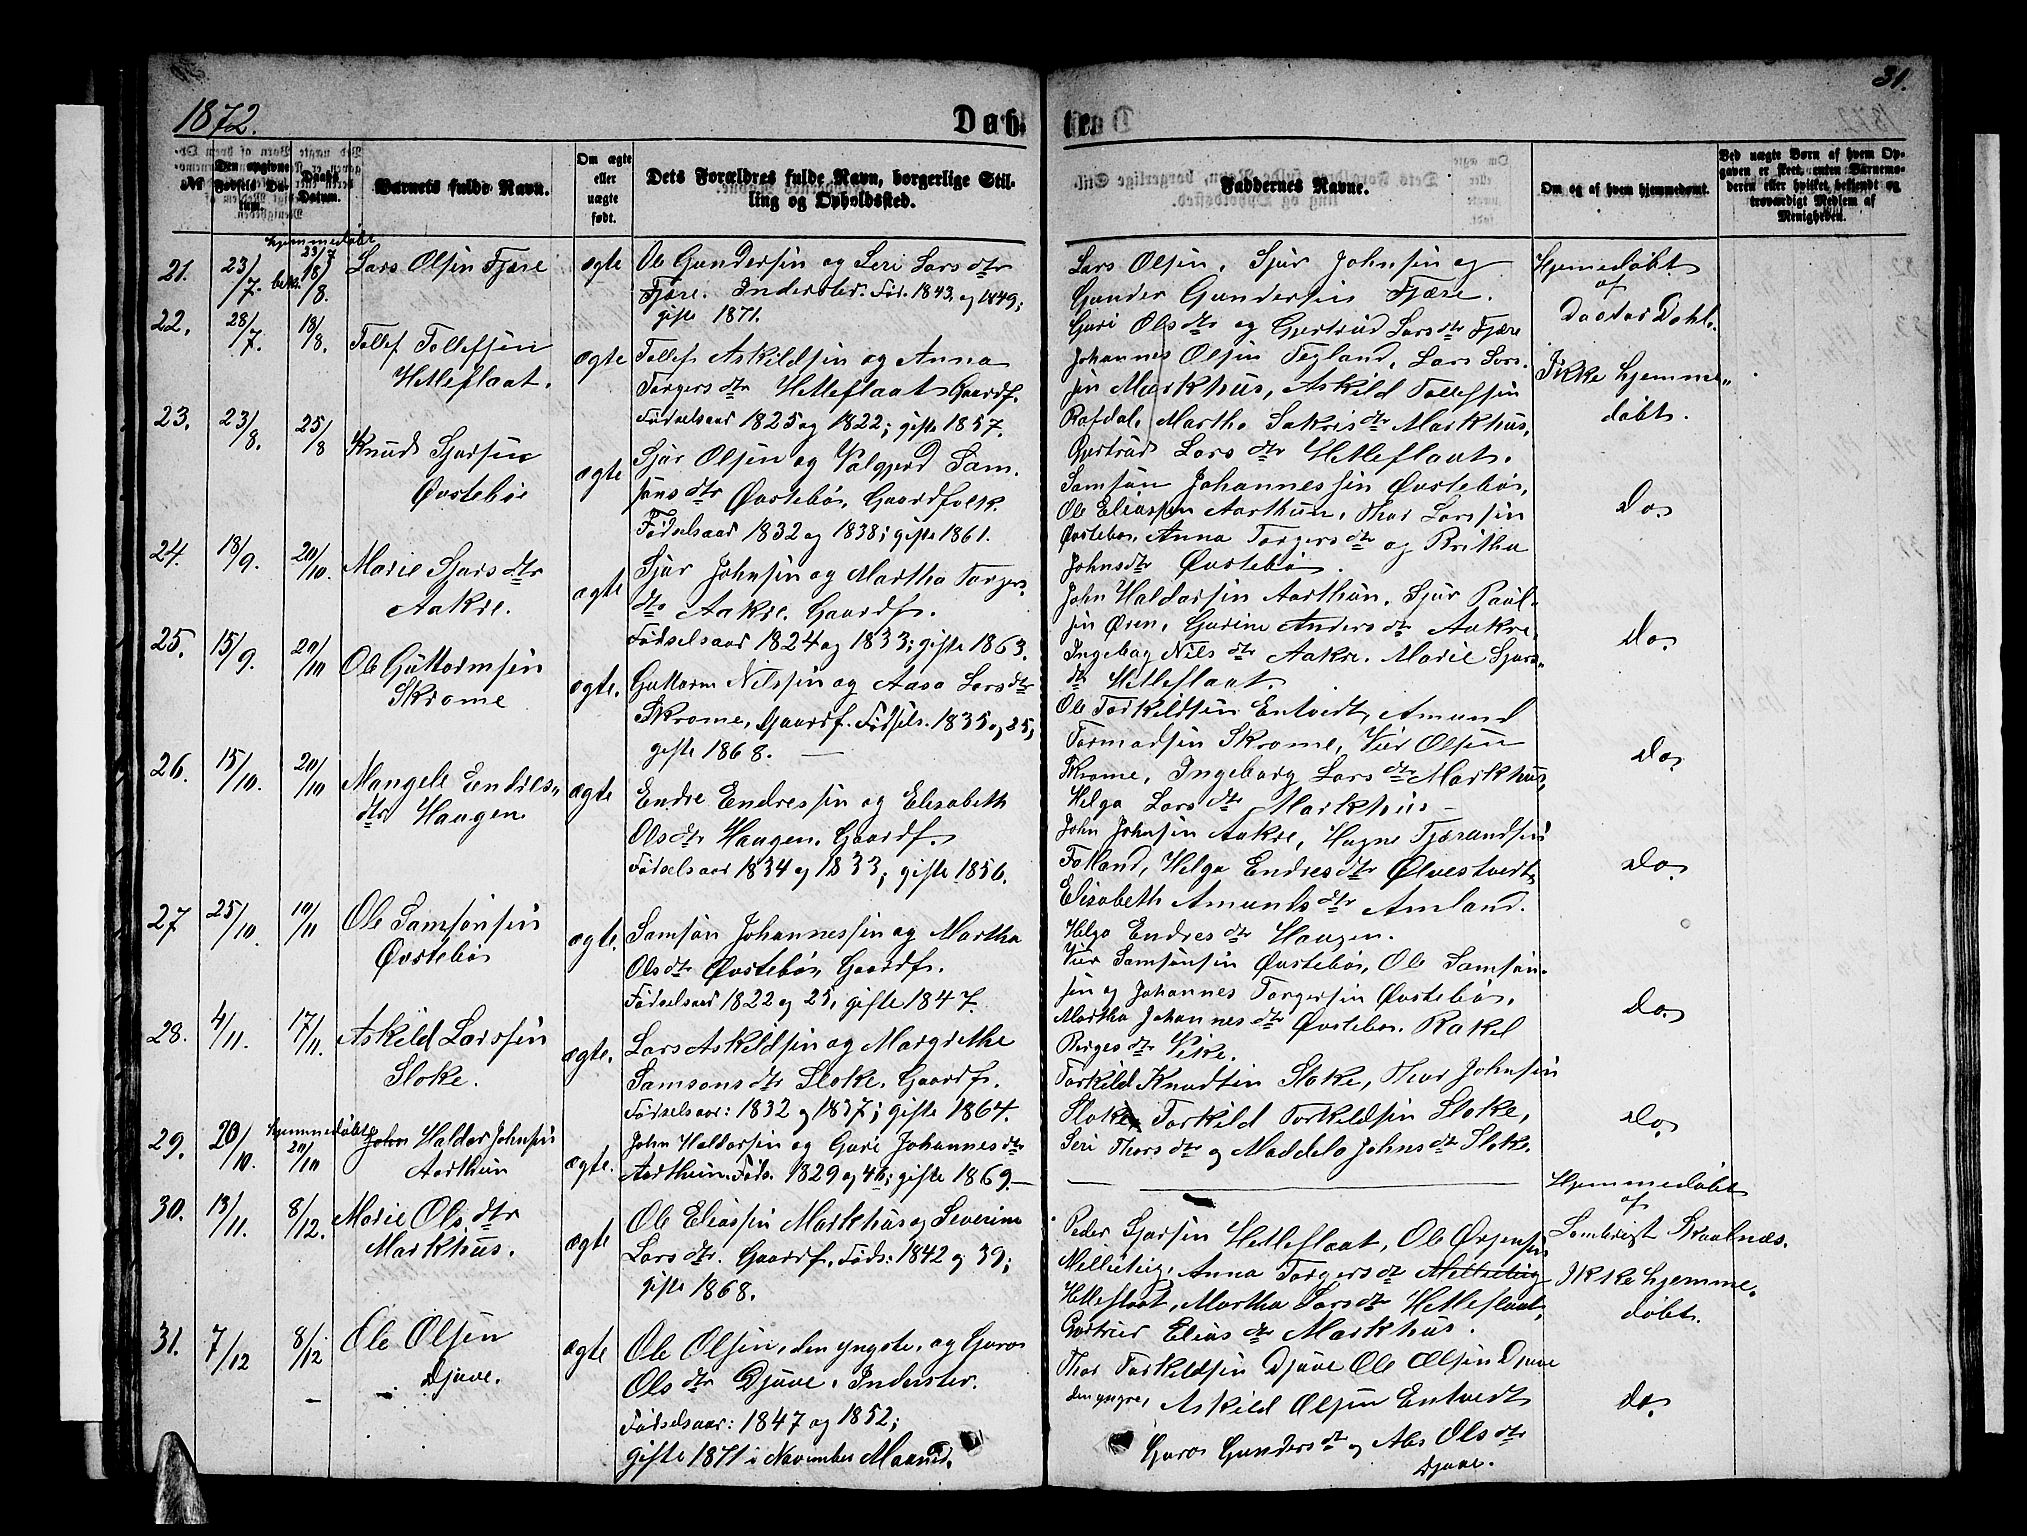 1872.
Døbte
31.
№
Den opgivne Fødsels Datum.
Daabs Datum.
Barnets fulde Navn.
Om ægte eller uægte født.
Dets Forældres fulde Navn, borgerlige Stilling og Opholdssted.
Faddernes Navne.
Om og af hvem hjemmedøbt.
Ved uægte Børn af hvem Opgaven er skeet, enten Barnemoderen eller hvilket bekjendt og troværdigt Medlem af Menigheden.
21. 23/7. hjemmedøbt 23/7 bekr. 18/8. Lars Olsen Fjære ægte
Ole Gundersen og Seri Lars dtr
Fjære. Inderster. Fød. 1843 og 1849;
gifte 1871.
Lars Olsen, Sjur Johnsen og
Gunder Gundersen Fjære.
Guri Ols dtr og Gjertrud Lars dtr Fjære
Hjemmedøbt
af
Doctor Dahl.
22. 28/7. 18/8. Tollef Tollefsen
Hetleflaat. ægte
Tollef Askildsen og Anna
Torgers dtr Hetleflaat Gaardf.
Fødselsaar 1825 og 1822; gifte 1857.
Johannes Olsen Tegland, Lars Lars-
sen Markhus, Askild Tollefsen
Rafdal, Martha Sakris dtr Markhus,
Gjertrud Lars dtr Hetleflaat.
Ikke hjemme-
døbt.
23. 23/8. 25/8 Knud Sjursen
Øvstebø ægte
Sjur Olsen og Valgjerd Sam-
sons dtr Øvstebø, Gaardfolk.
Fødselsaar 1832 og 1838; gifte 1861.
Samson Johannessen Øvstebø,
Ole Eliassen Aarthun, Thor Larssen
Øvstebø, Anna Torgers dtr og Britha
Johnsdtr Øvstebø.
Do.
24. 18/9. 20/10. Marie Sjurs dtr
Aakre. ægte
Sjur Johnsen og Martha Torgers-
dtr Aakre. Gaardf.
Fødselsaar 1824 og 1833; gifte 1863.
John Haldorsen Aarthun, Sjur Paul-
sen Øren, Gurine Anders dtr Aakre,
Ingeborg Nils dtr Aakre. Marie Sjurs-
dtr Hetleflaat.
Do.
25. 15/9. 20/10 Ole Guttormsen
Skrome ægte.
Guttorm Nilssen og Aasa Lars dtr
Skrome, Gaardf. Fødsels. 1835 og 25;
gifte 1868. —
Ole Torkildsen Entvedt, Amund
Tormodsen Skrome, Vier Olsen
Skrome, Ingeborg Lars dtr Markhus,
Helga Lars dtr Markhus —
Do.
26. 15/10. 20/10 Mangele Endres-
dtr Haugen ægte
Endre Endressen og Elisabeth
Ols dtr Haugen. Gaardf.
Fødselsaar 1834 og 1833; gifte 1856.
John Johnsen Aakre, Hagne Tjærandsen
Folland, Helga Endres dtr Ølvestvedt,
Elisabeth Amunds dtr Amland.
Helga Endres dtr Haugen.
Do.
27 25/10. 10/11 Ole Samsonsen
Øvstebø ægte.
Samson Johannessen og Martha
Ols dtr Øvstebø, Gaardf.
Fødselsaar 1822 og 25, gifte 1847.
Vier Samsonsen Øvstebø, Ole Samson-
sen og Johannes Torgersen Øvstebø,
Martha Johannes dtr Øvstebø. Rakel
Børges dtr Vike.
Do.
28. 4/11. 17/11. Askild Larssen
Sloke. ægte.
Lars Askildsen og Margrethe
Samsons dtr Sloke. Gaardf.
Fødselsaar: 1832 og 1837; gifte 1864.
Torkild Knudsen Sloke, Thor Johnsen
Sloke, Torkild Torkildsen Sloke,
Seri Thors dtr og Maddela Johns dtr Sloke.
Do.
29. 20/10. hjemmedøbt 20/10 Haldor Johnsen
Aarthun ægte.
John Haldorsen og Guri Johannes dtr
Aarthun. Føds. 1829 og 46; gifte 1869. —
Hjemmedøbt
af
30. 13/11. 8/12. Marie Ols dtr
Markhus. ægte
Ole Eliassen Markhus og Severine
Lars dtr. Gaardf. Føds: 1842 og 39;
gifte 1868.
Peder Sjursen Hetleflaat, Ole Ørjensen
Mellieteig, Anna Torgers dtr Mellieteig
Hetleflaat, Martha Lars dtr Hetleflaat,
Gjertrud Elias dtr Markhus.
Ikke hjemme-
døbt.
31. 7/12 8/12 Ole Olsen
Djuve. ægte
Ole Olsen, den yngste, og Guro
Ols dtr Djuve. Inderster.
Fødselsaar: 1847 og 1852;
gifte 1871 i November Maaned.
Thor Torkildsen Djuve Ole Olsen Djuve
den yngre, Askild Olsen Entvedt
Guro Gunders dtr og Ols dtr
Djuve.
do.